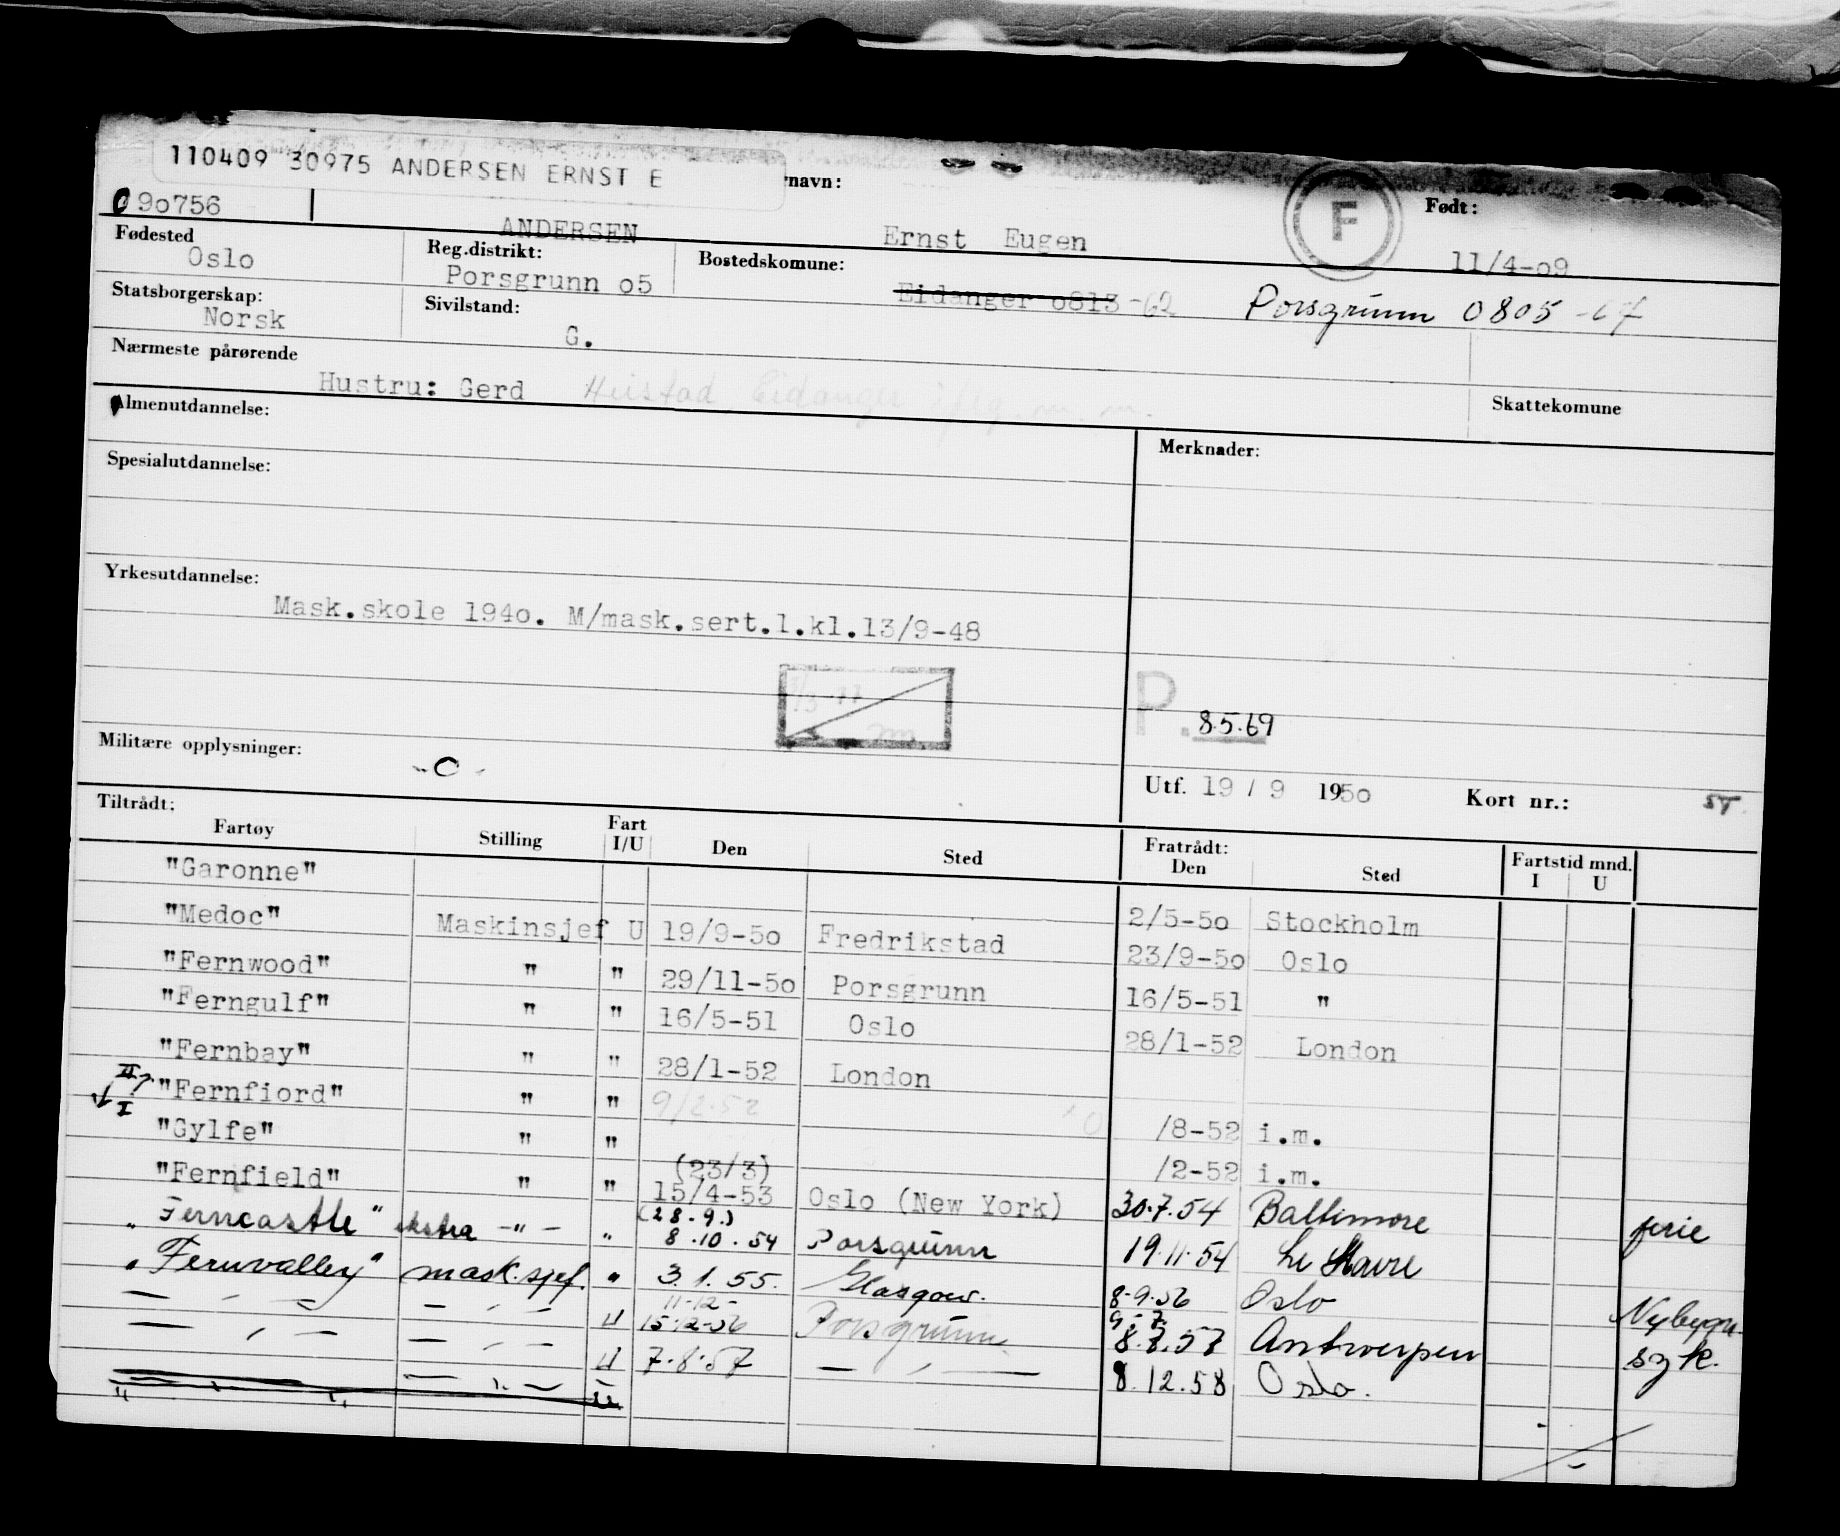 110409 30975 ANDERSEN ERNST E
rnavn:
Født:
090756
ANDERSEN
Ernst Eugen
F
11/4-o9
Fødested
Oslo
Reg.distrikt:
Porsgrunn o5
Bostedskomune:
Eidanger o813 -62 Porsgrunn 0805 -67
Statsborgerskap:
Norsk
Sivilstand:
G.
Nærmeste pårørende
Hustru: Gerd Heistad Eidanger
Skattekomune
Almenutdannelse:
Merknader:
Spesialutdannelse:
Yrkesutdannelse:
Mask.skole 194o. M/mask.sert.1.kl.13/9-48
P. 8.5.69
Militære opplysninger:
-0-
Utf. 19 / 9 1950 Kort nr.:
Tiltrådt:
Fartøy Stilling Fart I/U Den Sted Fratrådt: Den Sted Fartstid mnd. I U
"Garonne" 2/5-5o Stockholm
"Medoc" Maskinsjef U 19/9-5o Fredrikstad 23/9-5o Oslo
"Fernwood" " " 29/11-5o Porsgrunn 16/5-51 "
"Ferngulf" " " 16/5-51 Oslo 28/1-52 London
"Fernbay" " " 28/1-52 London
II "Fernfiord" " " 9/2.52 /8-52 i.m.
I "Gylfe" " " /2-52 i.m.
"Fernfield" " " (23/3) 15/4-53 Oslo (New York) 30.7.54 Baltimore ferie
" Ferncastle" ekstra -"- " (28.9.) 8.10.54 Porsgrunn 19.11.54 Le Havre
" Fernvalley" mask.sjef. " 3.1.55. Glasgow. 8.9.56 Oslo Nybygn.
— " — — " — U 11-12- 15.12-56 Porsgrunn 8.8.57 Antwerpen syk.
— " — — " — U 7.8.57 — " — 8.12.58 Oslo.